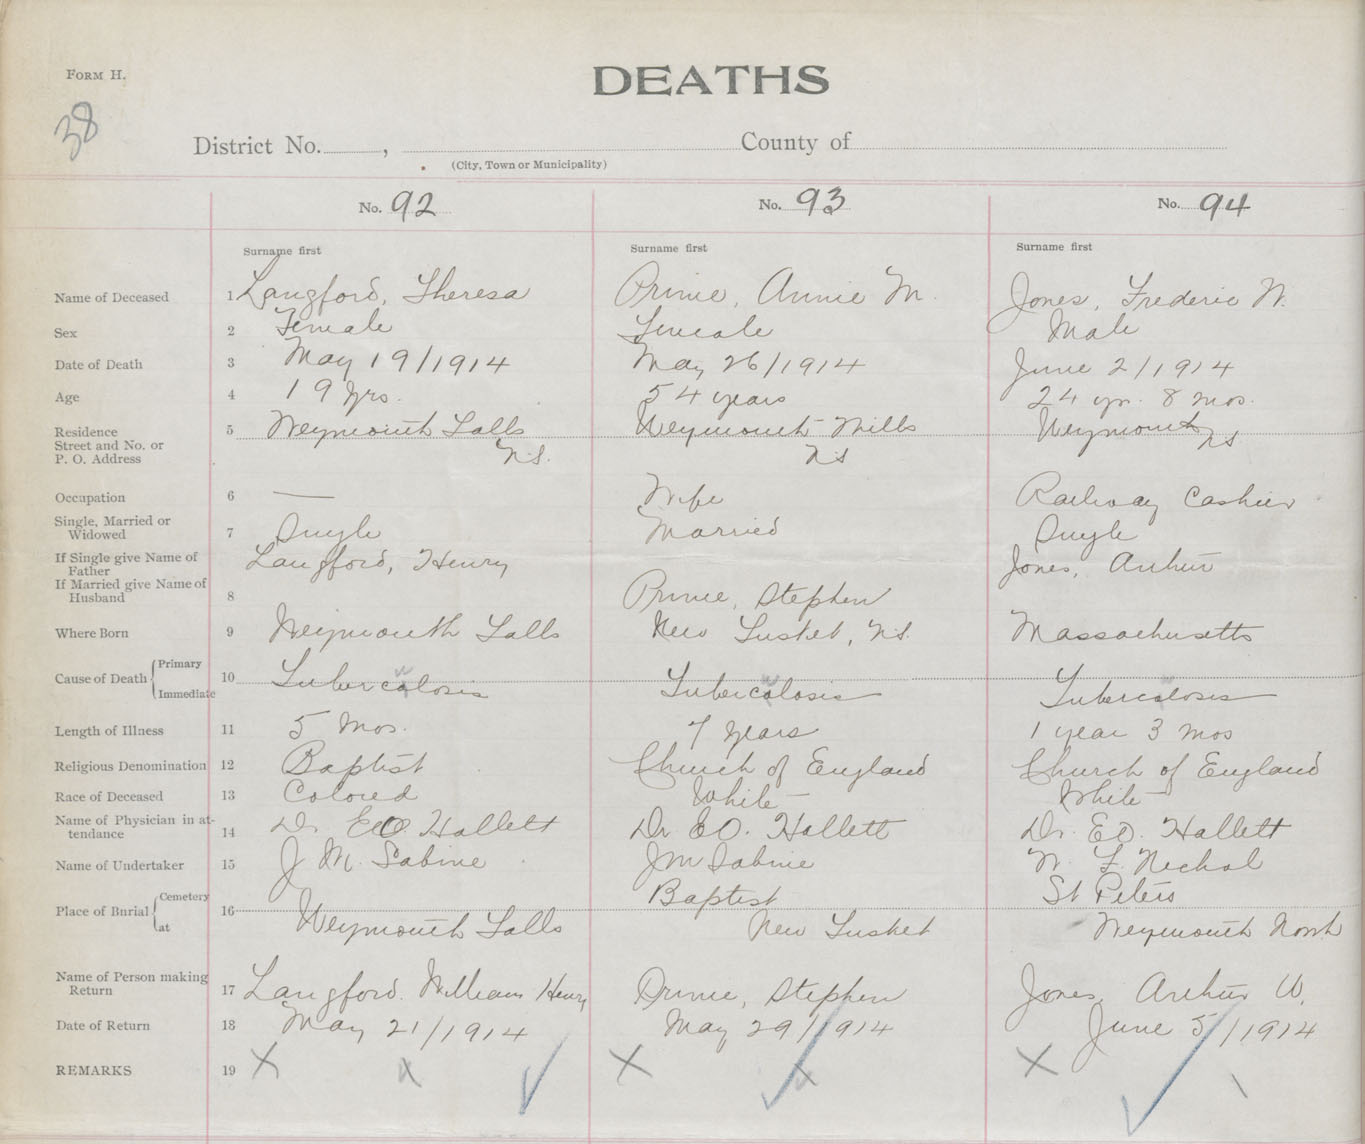 FORM H.
DEATHS
38
District No. , County of
(City, Town or Municipality)
No. 92 No. 93 No. 94
Surname first Surname first Surname first
Name of Deceased 1 Langford, Theresa Prime, Annie M. Jones, Frederic W.
Sex 2 Female Female Male
Date of Death 3 May 19/1914 May 26/1914 June 2/1914
Age 4 19 yrs. 54 years 24 yr. 8 mos.
Residence 5 Weymouth Falls Weymouth Mills Weymouth
Street and No. or
P. O. Address N.S. NS NS
Occupation 6 — Wife Railway Cashier
Single, Married or
Widowed 7 Single Married Single
If Single give Name of
Father Langford, Henry Jones, Arthur
If Married give Name of
Husband 8 Prime, Stephen
Where Born 9 Weymouth Falls New Tusket, N.S. Massachusetts
Cause of Death Primary
10 Tubercolosis Tubercolosis Tubercolosis
Immediate
Length of Illness 11 5 Mos. 7 years 1 year 3 mos
Religious Denomination 12 Baptist Church of England Church of England
Race of Deceased 13 Colored White White
Name of Physician in at-
tendance 14 Dr EO. Hallett Dr EO. Hallett Dr. EO. Hallett
Name of Undertaker 15 J M. Sabine JM Sabine W. F. Nichol
Place of Burial Cemetery Baptist St Peters
16
at Weymouth Falls New Tusket Weymouth North
Name of Person making
Return 17 Langford. William Henry Prime, Stephen Jones, Arthur W.
Date of Return 18 May 21/1914 May 29/1914 June 5/1914
REMARKS 19 X X ✓ X X ✓ X ✓